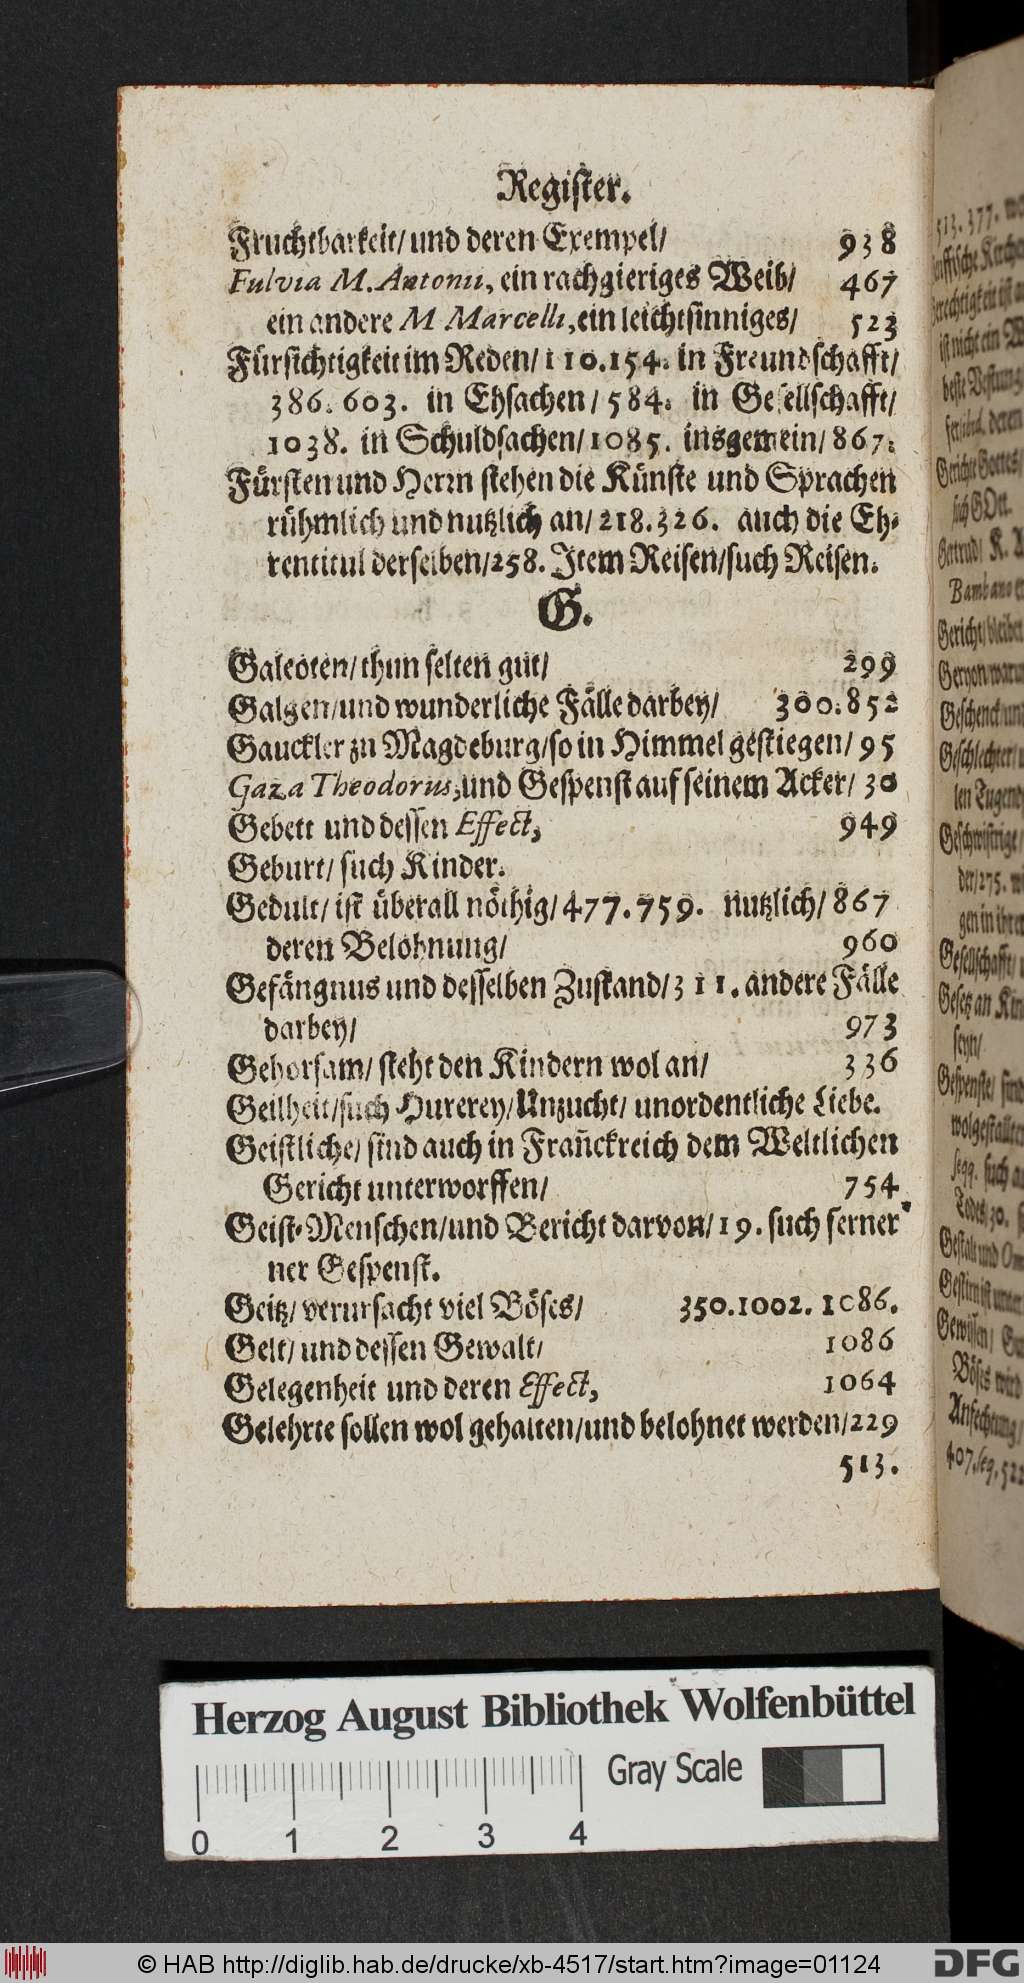 Register.
Fruchtbarkeit/ und deren Exempel/ 938
Fulvia M. Antonii, ein rachgieriges Weib/ 467
ein andere M Marcelli, ein leichtsinniges/ 523
Fürsichtigkeit im Reden/ 110.154. in Freundschafft/
386. 603. in Ehsachen/ 584. in Gesellschafft/
1038. in Schuldsachen/ 1085. insgemein/ 867.
Fürsten und Herrn stehen die Künste und Sprachen
rühmlich und nutzlich an/ 218.326. auch die Eh-
rentitul derselben/ 258. Item Reisen/ such Reisen.
G.
Galeoten/ thun selten gut/ 299
Galgen/ und wunderliche Fälle darbey/ 300.852
Gauckler zu Magdeburg/ so in Himmel gestiegen/ 95
Gaza Theodorus, und Gespenst auf seinem Acker/ 30
Gebett und dessen Effect, 949
Geburt/ such Kinder.
Gedult/ ist überall nöthig/ 477.759. nutzlich/ 867
deren Belohnung/ 960
Gefängnus und desselben Zustand/ 311. andere Fälle
darbey/ 973
Gehorsam/ steht den Kindern wol an/ 336
Geilheit/ such Hurerey/ Unzucht/ unordentliche Liebe.
Geistliche/ sind auch in Franckreich dem Weltlichen
Gericht unterworffen/ 754
Geist-Menschen/ und Bericht darvon/ 19. such ferner
ner Gespenst.
Geitz/ verursacht viel Böses/ 350.1002. 1086.
Gelt/ und dessen Gewalt/ 1086
Gelegenheit und deren Effect, 1064
Gelehrte sollen wol gehalten/ und belohnet werden/ 229
513.
513. 377.
Gerichte Gottes/
sich GOtt.
Gertrud/ K.
Bambano
Gericht/ bleiben
Geryon
Geschenck und
Geschlechter/
len Tugend
Geschwistrige/
der/ 275.
gen in ihrer
Gesellschafft/
Gesetz an
seyn/
Gespenste/ sind
wolgestalten
seqq. such
Todes/ 30.
Gestalt und
Gestirn ist unter
Gewissen/
Böses wird
Anfechtung/
407. seq. 522
Herzog August Bibliothek Wolfenbüttel
Gray Scale
0 1 2 3 4
© HAB http://diglib.hab.de/drucke/xb-4517/start.htm?image=01124
DFG